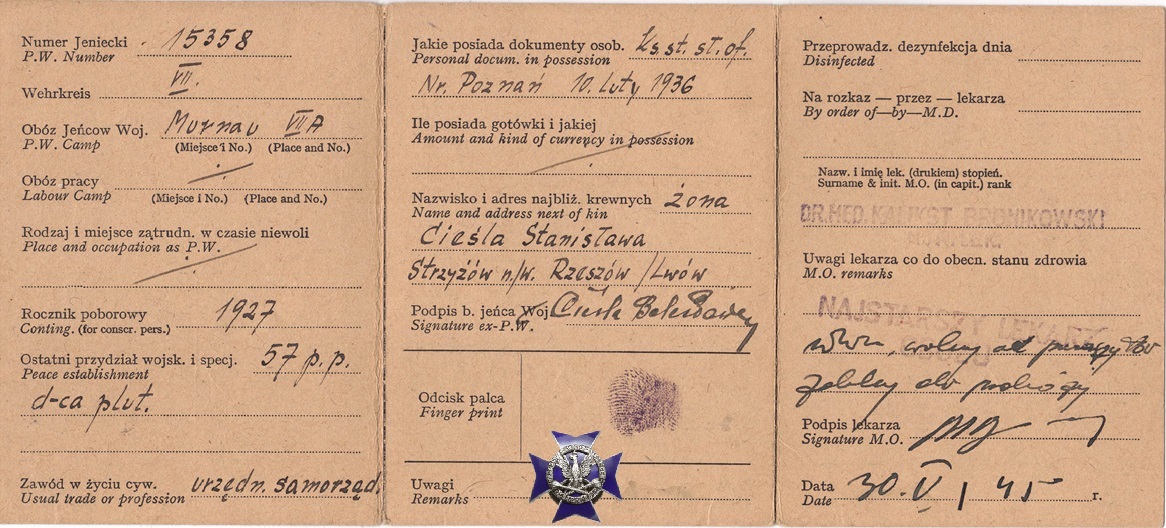 Numer Jeniecki 15358
P.W. Number
VII.
Wehrkreis
Obóz Jeńcow Woj. Murnau VII A
P.W. Camp (Miejsce i No.) (Place and No.)
Obóz pracy
Labour Camp (Miejsce i No.) (Place and No.)
Rodzaj i miejsce zątrudn. w czasie niewoli
Place and occupation as P.W.
Rocznik poborowy 1927
Conting. (for conscr. pers.)
Ostatni przydział wojsk. i specj. 57 p.p.
Peace establishment
d-ca plut.
Zawód w życiu cyw. urzędn. samorząd.
Usual trade or profession
Jakie posiada dokumenty osob. Ks. st. st. of.
Personal docum. in possession
Nr. Poznań 10. luty 1936
Ile posiada gotówki i jakiej
Amount and kind of currency in possession
Nazwisko i adres najbliż. krewnych żona
Name and address next of kin
Cieśla Stanisława
Strzyżów n/w. Rzeszów /Lwów
Podpis b. jeńca Woj Cieśla
Signature ex-P.W.
Odcisk palca
Finger print
Uwagi
Remarks
Przeprowadz. dezynfekcja dnia
Disinfected
Na rozkaz — przez — lekarza
By order of—by—M.D.
Nazw. i imię lek. (drukiem) stopień.
Surname & init. M.O. (in capit.) rank
DR. MED. KALIKST BRONIKOWSKI
Uwagi lekarza co do obecn. stanu zdrowia
M.O. remarks
NAJSTARSZY LEKARZ
wolny od
zdolny do podróży
Podpis lekarza
Signature M.O.
Data 30. V / 45 r.
Date